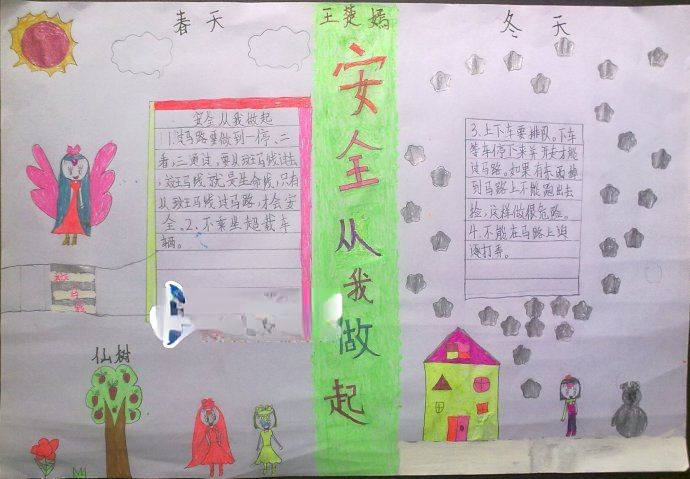 春天
王楚嫣
冬天
安全从我做起
安全从我做起
1.过马路要做到一停、二
看,三通过,要从斑马线过去
,斑马线就是生命线,只有
从斑马线过马路,才会安
全。2、不乘坐超载车
辆。
3.上下车要排队。下车
等车停下来并开走才能
过马路。如果有东西掉
到马路上不能跑出去
捡,这样做很危险。
4.不能在马路上追
逐打弄。
斑马线
仙树